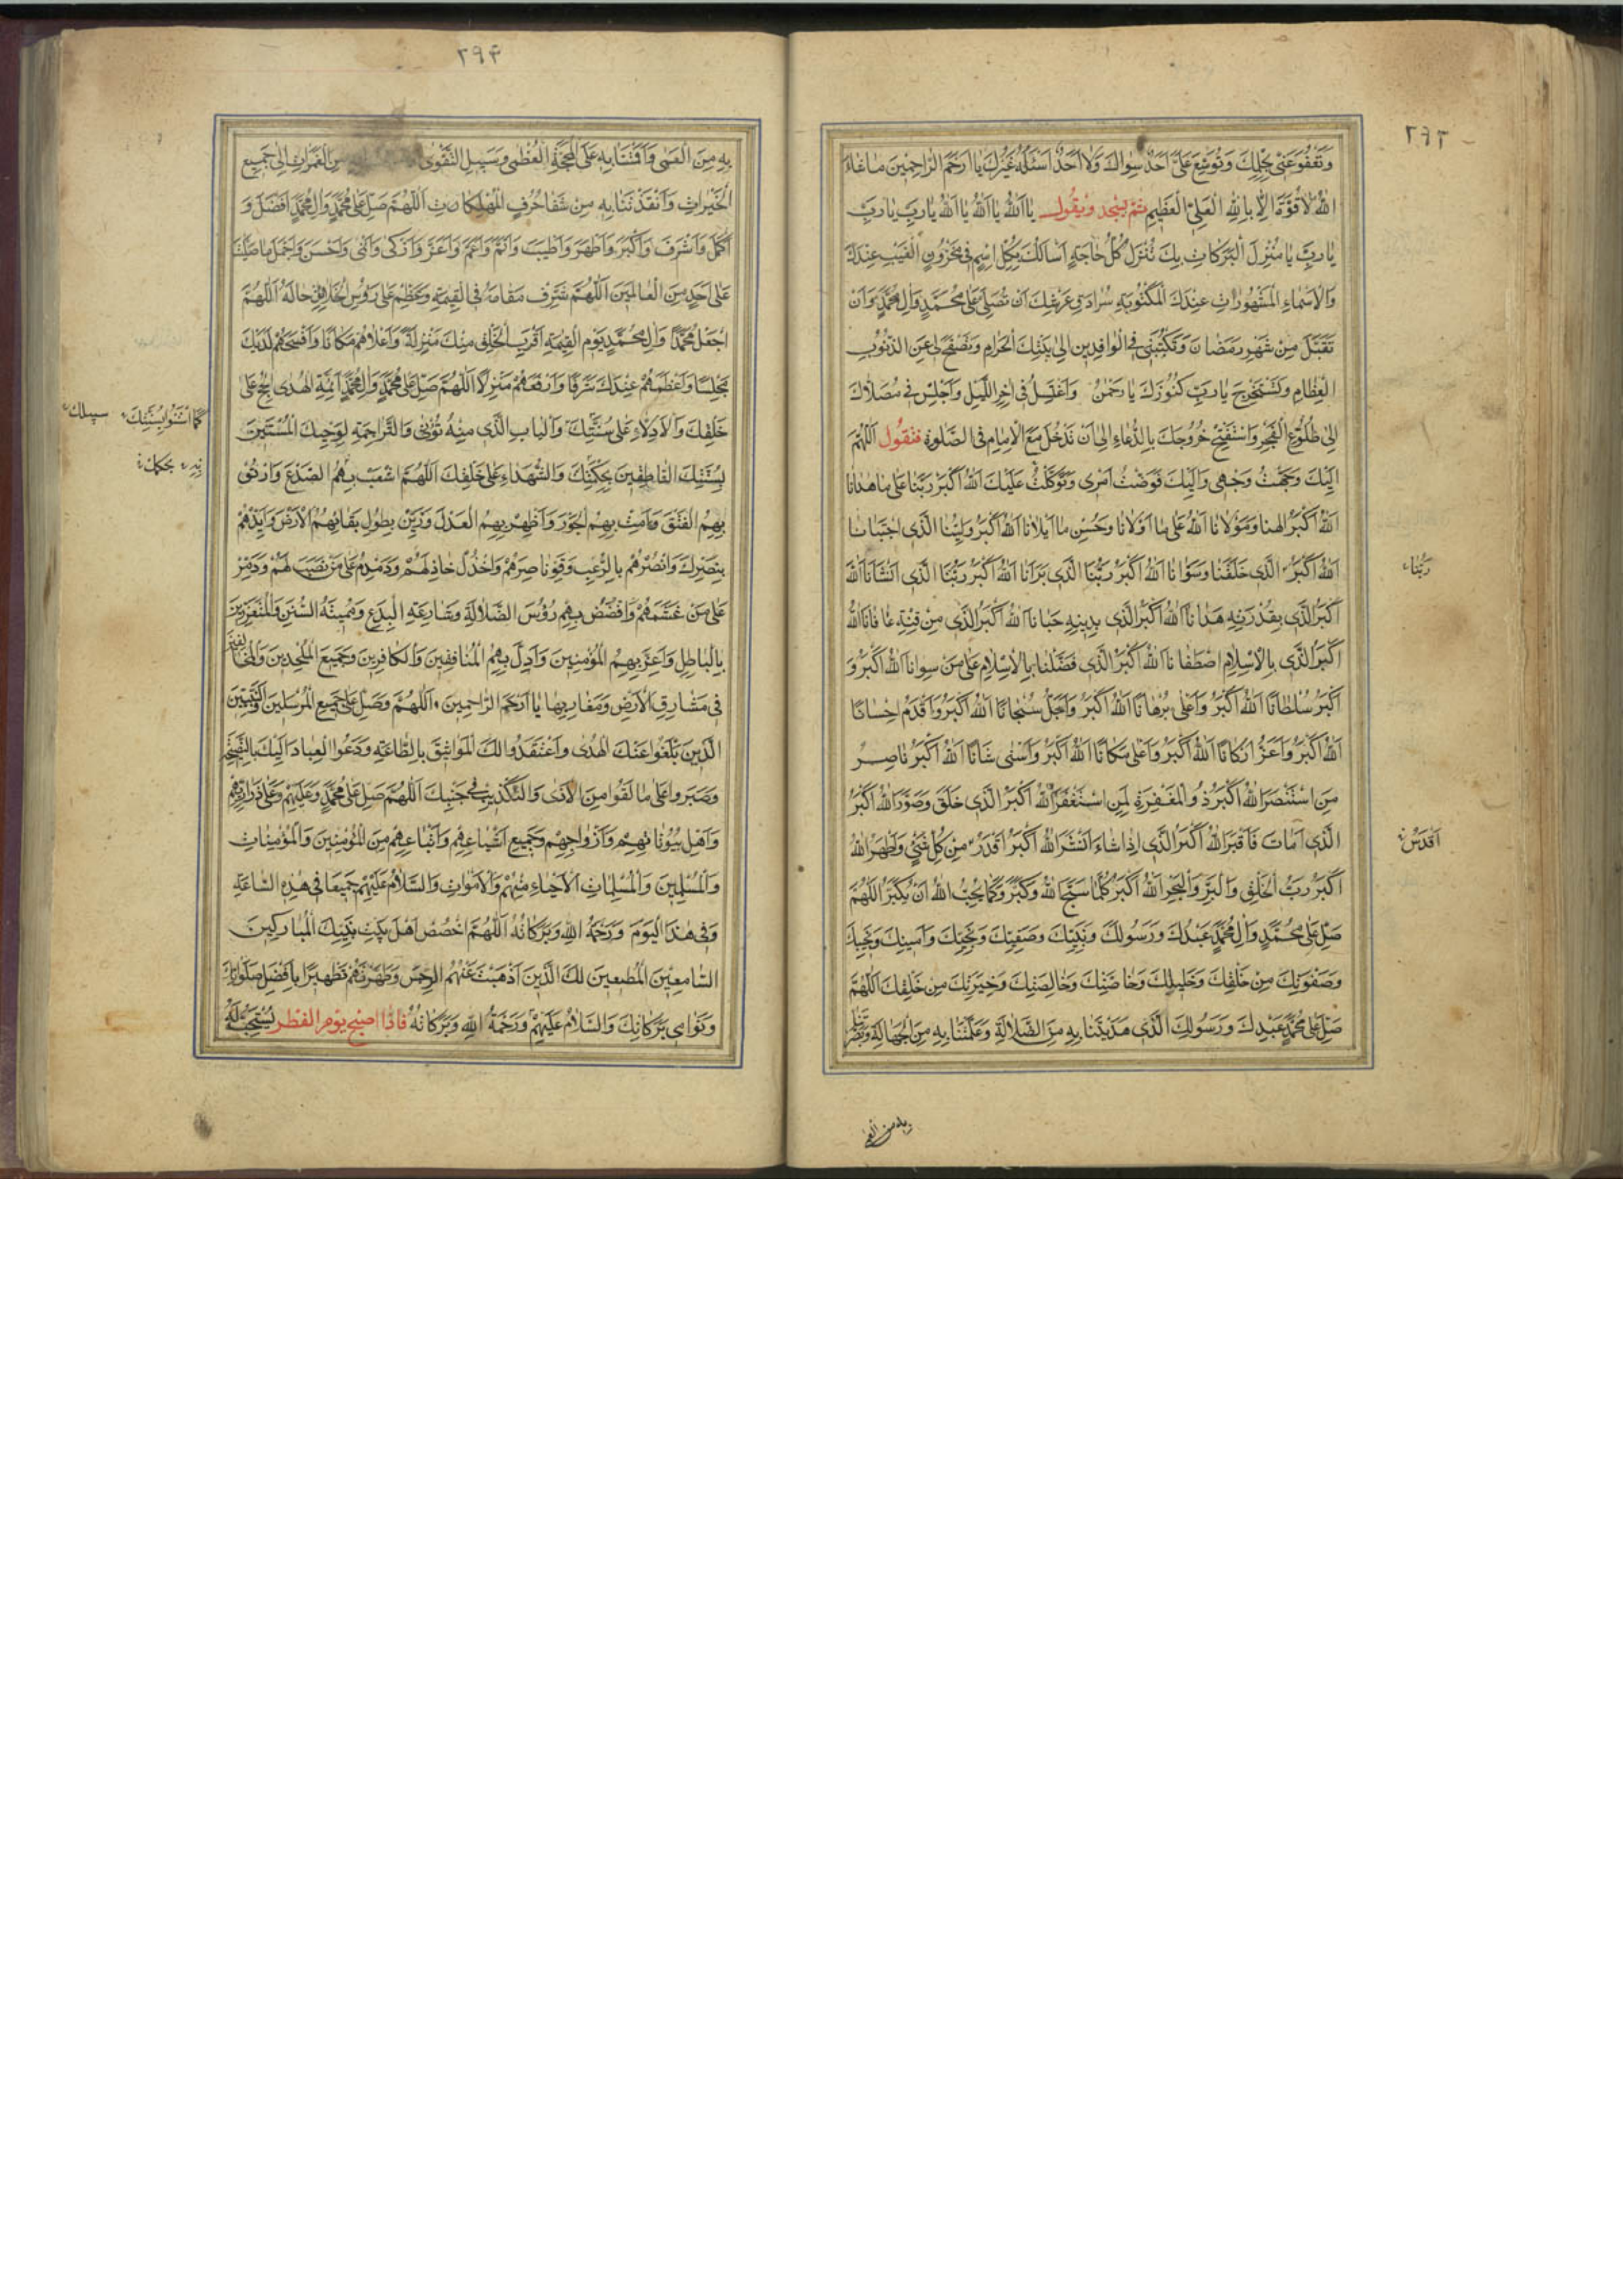 ٢٩٣
وَتَعْفُوَ عَنّي بِحِلْمِكَ وَتُوسِعَ عَلَيَّ اَحَدٌ سِواكَ وَلا اَحَدًا اَسْئَلُهُ غَيْرُكَ يا اَرْحَمَ الرّاحِمينَ ما شاءَ
اللهُ لا قُوَّةَ اِلّا بِاللهِ الْعَلِيِّ الْعَظيمِ ثم يسجد ويقول يا اَللهُ يا اَللهُ يا اَللهُ يا رَبِّ يا رَبِّ
يا رَبِّ يا مُنْزِلَ الْبَرَكاتِ بِكَ تُنْزَلُ كُلُّ حاجَةٍ اَسْاَلُكَ بِكُلِّ اسْمٍ في مَخْزُونِ الْغَيْبِ عِنْدَكَ
وَالْاَسْماءِ الْمَشْهُوراتِ عِنْدَكَ الْمَكْتُوبَةِ سُرادَقِ عَرْشِكَ اَنْ تُصَلِّيَ عَلى مُحَمَّدٍ وَآلِ مُحَمَّدٍ وَاَنْ
تَقْبَلَ مِنْ شَهْرِ رَمَضانَ وَتَكْتُبَني فِي الْوافِدينَ اِلى بَيْتِكَ الْحَرامِ وَتَصْفَحَ لي عَنِ الذُّنُوبِ
الْعِظامِ وَتَسْتَخْرِجَ يا رَبِّ كُنُوزَكَ يا رَحْمنُ وَاغْتَسِلْ في اخِرِ اللَّيْلِ وَاجْلِسْ في مُصَلّاكَ
اِلى طُلُوعِ الْفَجْرِ وَاسْتَفْتِحْ خُرُوجَكَ بِالدُّعاءِ اِلى اَنْ تَدْخُلَ مَعَ الْاِمامِ فِي الصَّلوةِ فتقول اَللّهُمَّ
اِلَيْكَ وَجَّهْتُ وَجْهي وَاِلَيْكَ فَوَّضْتُ اَمْري وَتَوَكَّلْتُ عَلَيْكَ اَللهُ اَكْبَرُ رَبَّنا عَلى ما هَدانا
اَللهُ اَكْبَرُ اِلهُنا وَمَوْلانا اَللهُ عَلى ما اَوْلانا وَحُسْنِ ما اَبْلانا اَللهُ اَكْبَرُ وَلِيُّنَا الَّذي اجْتَبانا
اَللهُ اَكْبَرُ الَّذي خَلَقَنا وَسَوّانا اَللهُ اَكْبَرُ رَبُّنَا الَّذي بَرَانا اَللهُ اَكْبَرُ رَبُّنَا الَّذي اَنْشَاَنا اَللهُ
رَبُّنا
اَكْبَرُ الَّذي بِقُدْرَتِهِ هَدانا اَللهُ اَكْبَرُ الَّذي بِدينِهِ حَبانا اَللهُ اَكْبَرُ الَّذي مِنْ فِتْنَةٍ عافانا اَللهُ
اَكْبَرُ الَّذي بِالْاِسْلامِ اصْطَفانا اَللهُ اَكْبَرُ الَّذي فَضَّلَنا بِالْاِسْلامِ عَلى مَنْ سِوانا اَللهُ اَكْبَرُ وَ
اَكْبَرُ سُلْطانًا اَللهُ اَكْبَرُ وَاَعْلى بُرْهانًا اَللهُ اَكْبَرُ وَاَجَلُّ سُبْحانًا اَللهُ اَكْبَرُ وَاَقْدَمُ اِحْسانًا
اَللهُ اَكْبَرُ وَاَعَزُّ اَرْكانًا اَللهُ اَكْبَرُ وَاَعْلى مَكانًا اَللهُ اَكْبَرُ وَاَسْنى شَانًا اَللهُ اَكْبَرُ ناصِرُ
مَنِ اسْتَنْصَرَ اَللهُ اَكْبَرُ ذُو الْمَغْفِرَةِ لِمَنِ اسْتَغْفَرَ اَللهُ اَكْبَرُ الَّذي خَلَقَ وَصَوَّرَ اَللهُ اَكْبَرُ
الَّذي اَماتَ فَاَقْبَرَ اَللهُ اَكْبَرُ الَّذي اِذا شاءَ اَنْشَرَ اَللهُ اَكْبَرُ اَقْدَرُ مِنْ كُلِّ شَيْءٍ وَاَظْهَرُ اَللهُ
اَقْدَسُ
اَكْبَرُ رَبُّ الْخَلْقِ وَالْبَرِّ وَالْبَحْرِ اَللهُ اَكْبَرُ كُلَّما سَبَّحَ اللهَ وَكَبَّرَ وَكَما يُحِبُّ اللهُ اَنْ يُكَبَّرَ اَللّهُمَّ
صَلِّ عَلى مُحَمَّدٍ وَآلِ مُحَمَّدٍ عَبْدِكَ وَرَسُولِكَ وَنَبِيِّكَ وَصَفِيِّكَ وَنَجِيِّكَ وَاَمينِكَ وَنَجيبِكَ
وَصَفْوَتِكَ مِنْ خَلْقِكَ وَخَليلِكَ وَخاصَّتِكَ وَخالِصَتِكَ وَخِيَرَتِكَ مِنْ خَلْقِكَ اَللّهُمَّ
صَلِّ عَلى مُحَمَّدٍ عَبْدِكَ وَرَسُولِكَ الَّذي هَدَيْتَنا بِهِ مِنَ الضَّلالَةِ وَعَلَّمْتَنا بِهِ مِنَ الْجَهالَةِ وَبَصَّرْتَنا
به من العمى
٢٩۴
بِهِ مِنَ الْعَمى وَاَقَمْتَنا بِهِ عَلَى الْمَحَجَّةِ الْعُظْمى وَسَبيلِ التَّقْوى مِنَ الْغَمَراتِ اِلى جَميعِ
الْخَيْراتِ وَاَنْقَذْتَنا بِهِ مِنْ شَفا جُرُفِ الْمَهْلَكاتِ اَللّهُمَّ صَلِّ عَلى مُحَمَّدٍ وَآلِ مُحَمَّدٍ اَفْضَلَ وَ
اَكْمَلَ وَاَشْرَفَ وَاَكْبَرَ وَاَطْهَرَ وَاَطْيَبَ وَاَتَمَّ وَاَعَمَّ وَاَعَزَّ وَاَزْكى وَاَنْمى وَاَحْسَنَ وَاَجْمَلَ ما صَلَّيْتَ
عَلى اَحَدٍ مِنَ الْعالَمينَ اَللّهُمَّ شَرِّفْ مَقامَهُ فِي الْقِيمَةِ وَعَظِّمْ عَلى رُؤُسِ الْخَلائِقِ حالَهُ اَللّهُمَّ
اجْعَلْ مُحَمَّدًا وَآلَ مُحَمَّدٍ يَوْمَ الْقِيمَةِ اَقْرَبَ الْخَلْقِ مِنْكَ مَنْزِلَةً وَاَعْلاهُمْ مَكانًا وَاَفْسَحَهُمْ لَدَيْكَ
مَجْلِسًا وَاَعْظَمَهُمْ عِنْدَكَ شَرَفًا وَاَرْفَعَهُمْ مَنْزِلًا اَللّهُمَّ صَلِّ عَلى مُحَمَّدٍ وَآلِ مُحَمَّدٍ اَئِمَّةِ الْهُدى الْحُجَجِ عَلى
خَلْقِكَ وَالْاَدِلّاءِ عَلى سُنَّتِكَ وَالْبابِ الَّذي مِنْهُ تُؤْتى وَالتَّراجِمَةِ لِوَحْيِكَ الْمُسْتَنّينَ
كَما اسْتَنُّوا بِسُنَّتِكَ سبيلك
بِسُنَّتِكَ النّاطِقينَ بِحِكْمَتِكَ وَالشُّهَداءِ عَلى خَلْقِكَ اَللّهُمَّ اشْعَبْ بِهِمُ الصَّدْعَ وَارْتُقْ
بحكمك
بِهِمُ الْفَتْقَ وَاَمِتْ بِهِمُ الْجَوْرَ وَاَظْهِرْ بِهِمُ الْعَدْلَ وَزَيِّنْ بِطُولِ بَقائِهِمُ الْاَرْضَ وَاَيِّدْهُمْ
بِنَصْرِكَ وَانْصُرْهُمْ بِالرُّعْبِ وَقَوِّ ناصِرَهُمْ وَاخْذُلْ خاذِلَهُمْ وَدَمْدِمْ عَلى مَنْ نَصَبَ لَهُمْ وَدَمِّرْ
عَلى مَنْ غَشَمَهُمْ وَافْضُضْ بِهِمْ رُؤُسَ الضَّلالَةِ وَشارِعَةِ الْبِدَعِ وَمُميتَةَ السُّنَنِ وَالْمُتَعَزِّزينَ
بِالْباطِلِ وَاَعِزَّ بِهِمُ الْمُؤْمِنينَ وَاَذِلَّ بِهِمُ الْمُنافِقينَ وَالْكافِرينَ وَجَميعَ الْمُلْحِدينَ وَالْمُخالِفينَ
في مَشارِقِ الْاَرْضِ وَمَغارِبِها يا اَرْحَمَ الرّاحِمينَ اَللّهُمَّ وَصَلِّ عَلى جَميعِ الْمُرْسَلينَ وَالنَّبِيّينَ
الَّذينَ بَلَّغُوا عَنْكَ الْهُدى وَاعْتَقَدُوا لَكَ الْمَواثيقَ بِالطّاعَةِ وَدَعَوُا الْعِبادَ اِلَيْكَ بِالنَّصيحَةِ
وَصَبَرُوا عَلى ما لَقُوا مِنَ الْاَذى وَالتَّكْذيبِ في جَنْبِكَ اَللّهُمَّ صَلِّ عَلى مُحَمَّدٍ وَعَلَيْهِمْ وَعَلى ذَراريهِمْ
وَاَهْلِ بُيُوتاتِهِمْ وَاَزْواجِهِمْ وَجَميعِ اَشْياعِهِمْ وَاَتْباعِهِمْ مِنَ الْمُؤْمِنينَ وَالْمُؤْمِناتِ
وَالْمُسْلِمينَ وَالْمُسْلِماتِ الْاَحْياءِ مِنْهُمْ وَالْاَمْواتِ وَالسَّلامُ عَلَيْهِمْ جَميعًا في هذِهِ السّاعَةِ
وَفي هذَا الْيَوْمِ وَرَحْمَةُ اللهِ وَبَرَكاتُهُ اَللّهُمَّ اخْصُصْ اَهْلَ بَيْتِ نَبِيِّكَ الْمُبارَكينَ
السّامِعينَ الْمُطيعينَ لَكَ الَّذينَ اَذْهَبْتَ عَنْهُمُ الرِّجْسَ وَطَهَّرْتَهُمْ تَطْهيرًا بِاَفْضَلِ صَلَواتِكَ
وَنَوامي بَرَكاتِكَ وَالسَّلامُ عَلَيْهِمْ وَرَحْمَةُ اللهِ وَبَرَكاتُهُ فاذا اصبح يوم الفطر يُسْتَحَبُّ لَهُ